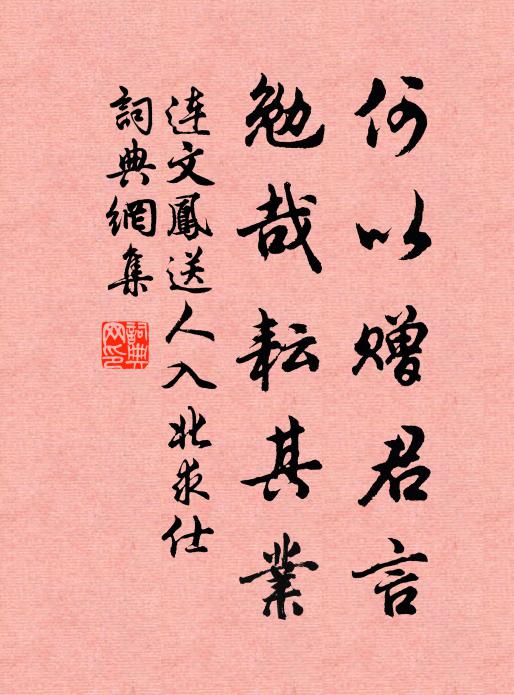 何以赠君言
勉哉耘其業
连文鳳送人入北求仕
詞典網集
詞典网印